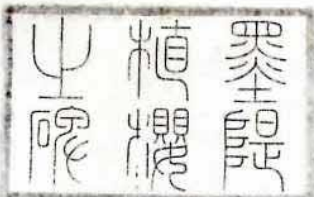 墨隄
植櫻
之碑